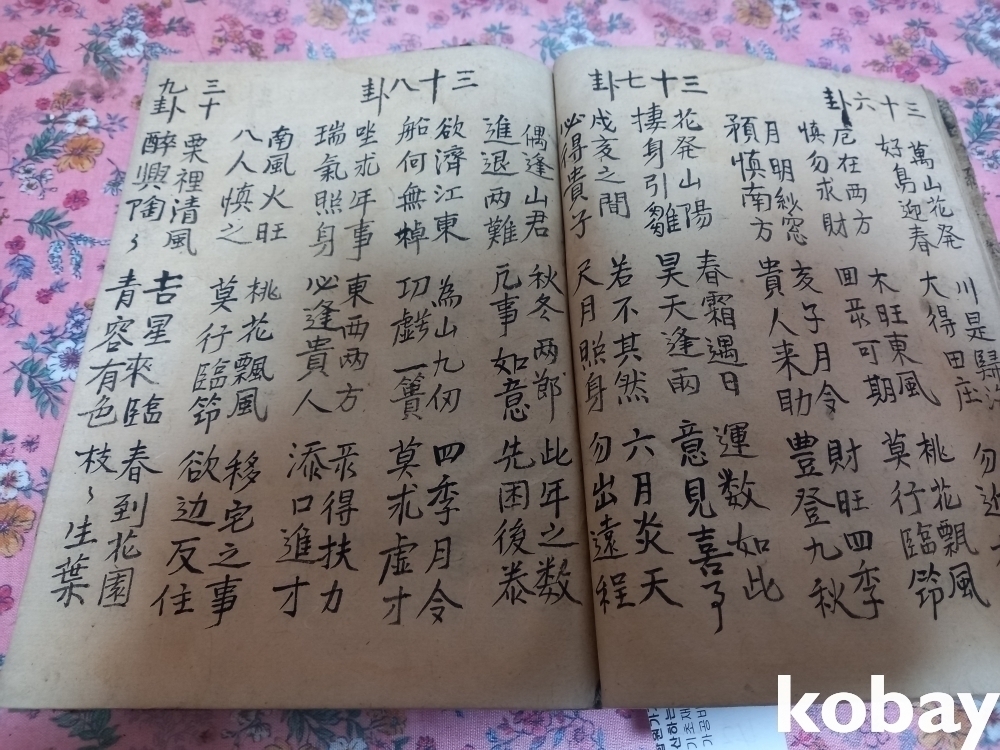 三十六卦
萬山花発
好鳥迎春
厄在西方
慎勿求財
月明紗窓
預慎南方
川是歸
大得田庄
木旺東風
回彔可期
亥子月令
貴人来助
勿近
桃花飄風
莫行臨節
財旺四季
豊登九秋
三十七卦
花発山陽
棲身引雛
戌亥之間
必得貴子
春霜遇日
昊天逢雨
若不其然
尺月照身
運数如此
意見喜事
六月炎天
勿出遠程
三十八卦
偶逢山君
進退两難
欲濟江東
船何無棹
坐求年事
瑞氣照身
南風火旺
八人慎之
秋冬两郎
凢事如意
為山九仞
功虧一簣
東西两方
必逢貴人
桃花飄風
莫行臨節
此年之数
先困後泰
四季月令
莫求虚才
彔得扶力
添口進才
移宅之事
欲边反住
三十九卦
栗裡清風
醉興陶〻
吉星来臨
青容有色
春到花園
枝〻生葉
kobay